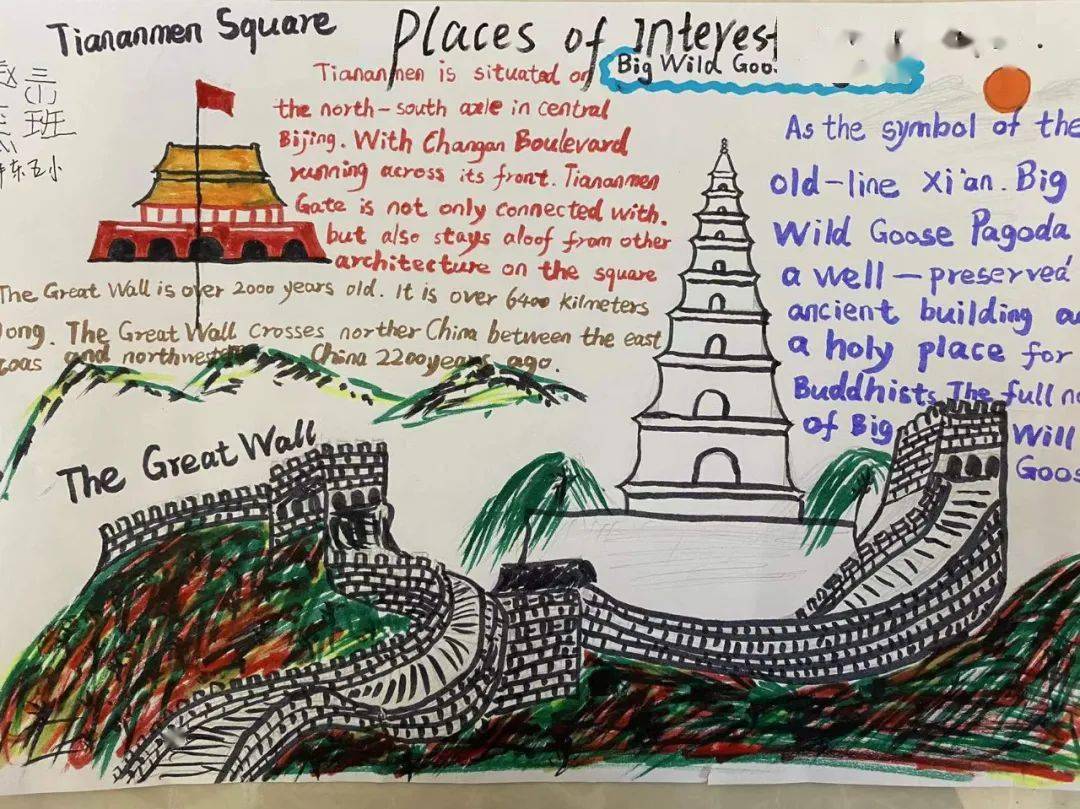 Tiananmen Square
Places of Interest
三(1)班
东五小
Tiananmen is situated on
the north-south axle in central
Bijing. With Changan Boulevard
running across its front. Tiananmen
Gate is not only connected with.
but also stays aloof from other
architecture on the square
Big Wild Goo
As the symbol of the
old-line Xi'an. Big
Wild Goose Pagoda
a well-preserved
ancient building
a holy place for
Buddhists The full
of Big Will
Goos
The Great Wall is over 2000 years old. It is over 6400 kilmeters
long. The Great Wall crosses norther China between the east
coas and northwest China 2200 years ago.
The Great Wall